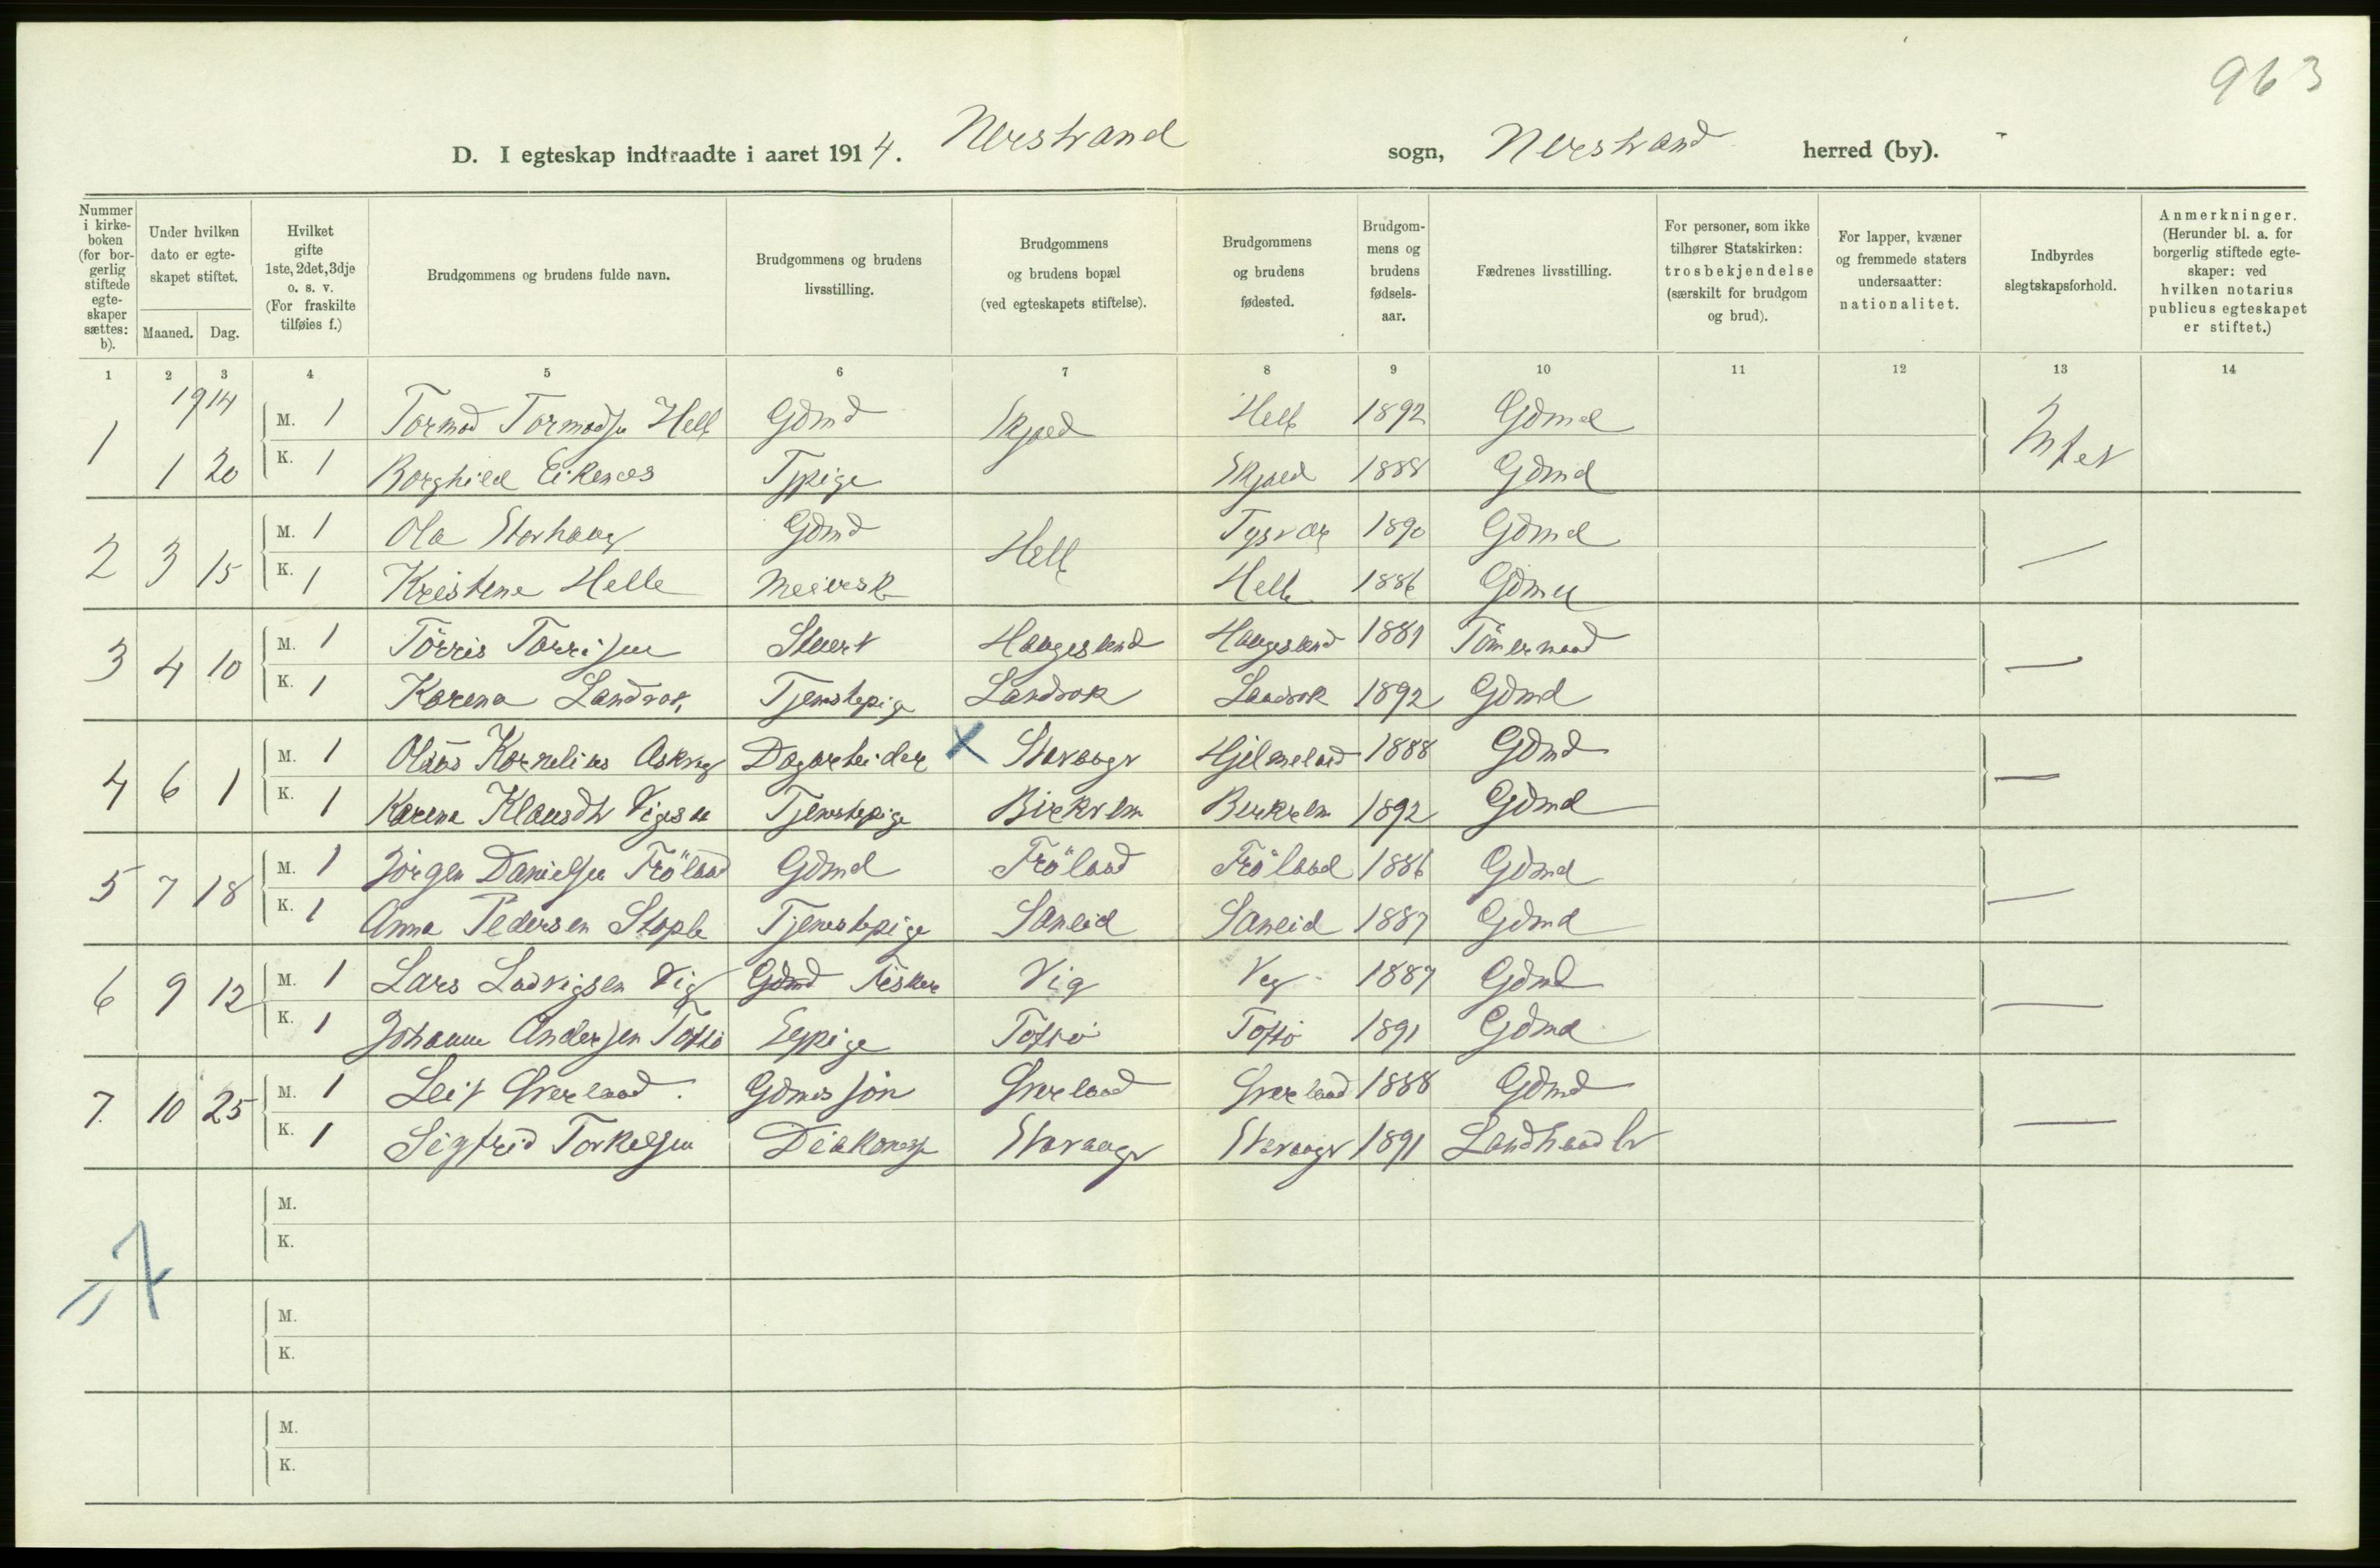 963
D. I egteskap indtraadte i aaret 1914. Nerstrand sogn, Nerstrand herred (by).
Nummer i kirkeboken (for borgerlig stiftede egteskaper sættes: b).
Under hvilken dato er egteskapet stiftet.
Maaned. Dag.
Hvilket gifte 1ste, 2det, 3dje o. s. v. (For fraskilte tilføies f.)
Brudgommens og brudens fulde navn.
Brudgommens og brudens livsstilling.
Brudgommens og brudens bopæl (ved egteskapets stiftelse).
Brudgommens og brudens fødested.
Brudgommens og brudens fødselsaar.
Fædrenes livsstilling.
For personer, som ikke tilhører Statskirken: trosbekjendelse (særskilt for brudgom og brud).
For lapper, kvæner og fremmede staters undersaatter: nationalitet.
Indbyrdes slegtskapsforhold.
Anmerkninger. (Herunder bl. a. for borgerlig stiftede egteskaper: ved hvilken notarius publicus egteskapet er stiftet.)
1 2 3 4 5 6 7 8 9 10 11 12 13 14
1914
1 M. 1 Tormod Tormodsen Helle Gdmd Skjold Helle 1892 Gdmd Intet
1 20 K. 1 Borghild Eikenes Tjpige Skjold 1888 Gdmd
2 3 15 M. 1 Ola Storhaug Gdmd Helle Tysvær 1890 Gdmd —
K. 1 Kristene Helle Meiersk Helle 1886 Gdmd
3 4 10 M. 1 Törris Torrisen Stuert Haugesund Haugesund 1881 Tömermand —
K. 1 Karena Landrok Tjenestepige Landrok Landrok 1892 Gdmd
4 6 1 M. 1 Olaus Kornelius Dagarbeider X Stavanger Hjelmeland 1888 Gdmd —
K. 1 Karena Klausdtr Vigesaa Tjenestepige Birkrem Birkrem 1892 Gdmd
5 7 18 M. 1 Jörgen Danielsen Fröland Gdmd Fröland Fröland 1886 Gdmd —
K. 1 Anna Pedersen Stople Tjenestepige Saneid Saneid 1887 Gdmd
6 9 12 M. 1 Lars Ludvigsen Vig Gdmd Fisker Vig Vig 1887 Gdmd —
K. 1 Johanne Andersen Toftö Tjpige Toftö Toftö 1891 Gdmd
7. 10 25 M. 1 Leif Sverland Gdmssön Sverland Sverland 1888 Gdmd —
K. 1 Sigfrid Torkelsen Diakonesse Stavanger Stavanger 1891 Landhandler
M.
K.
= 7
M.
K.
M.
K.